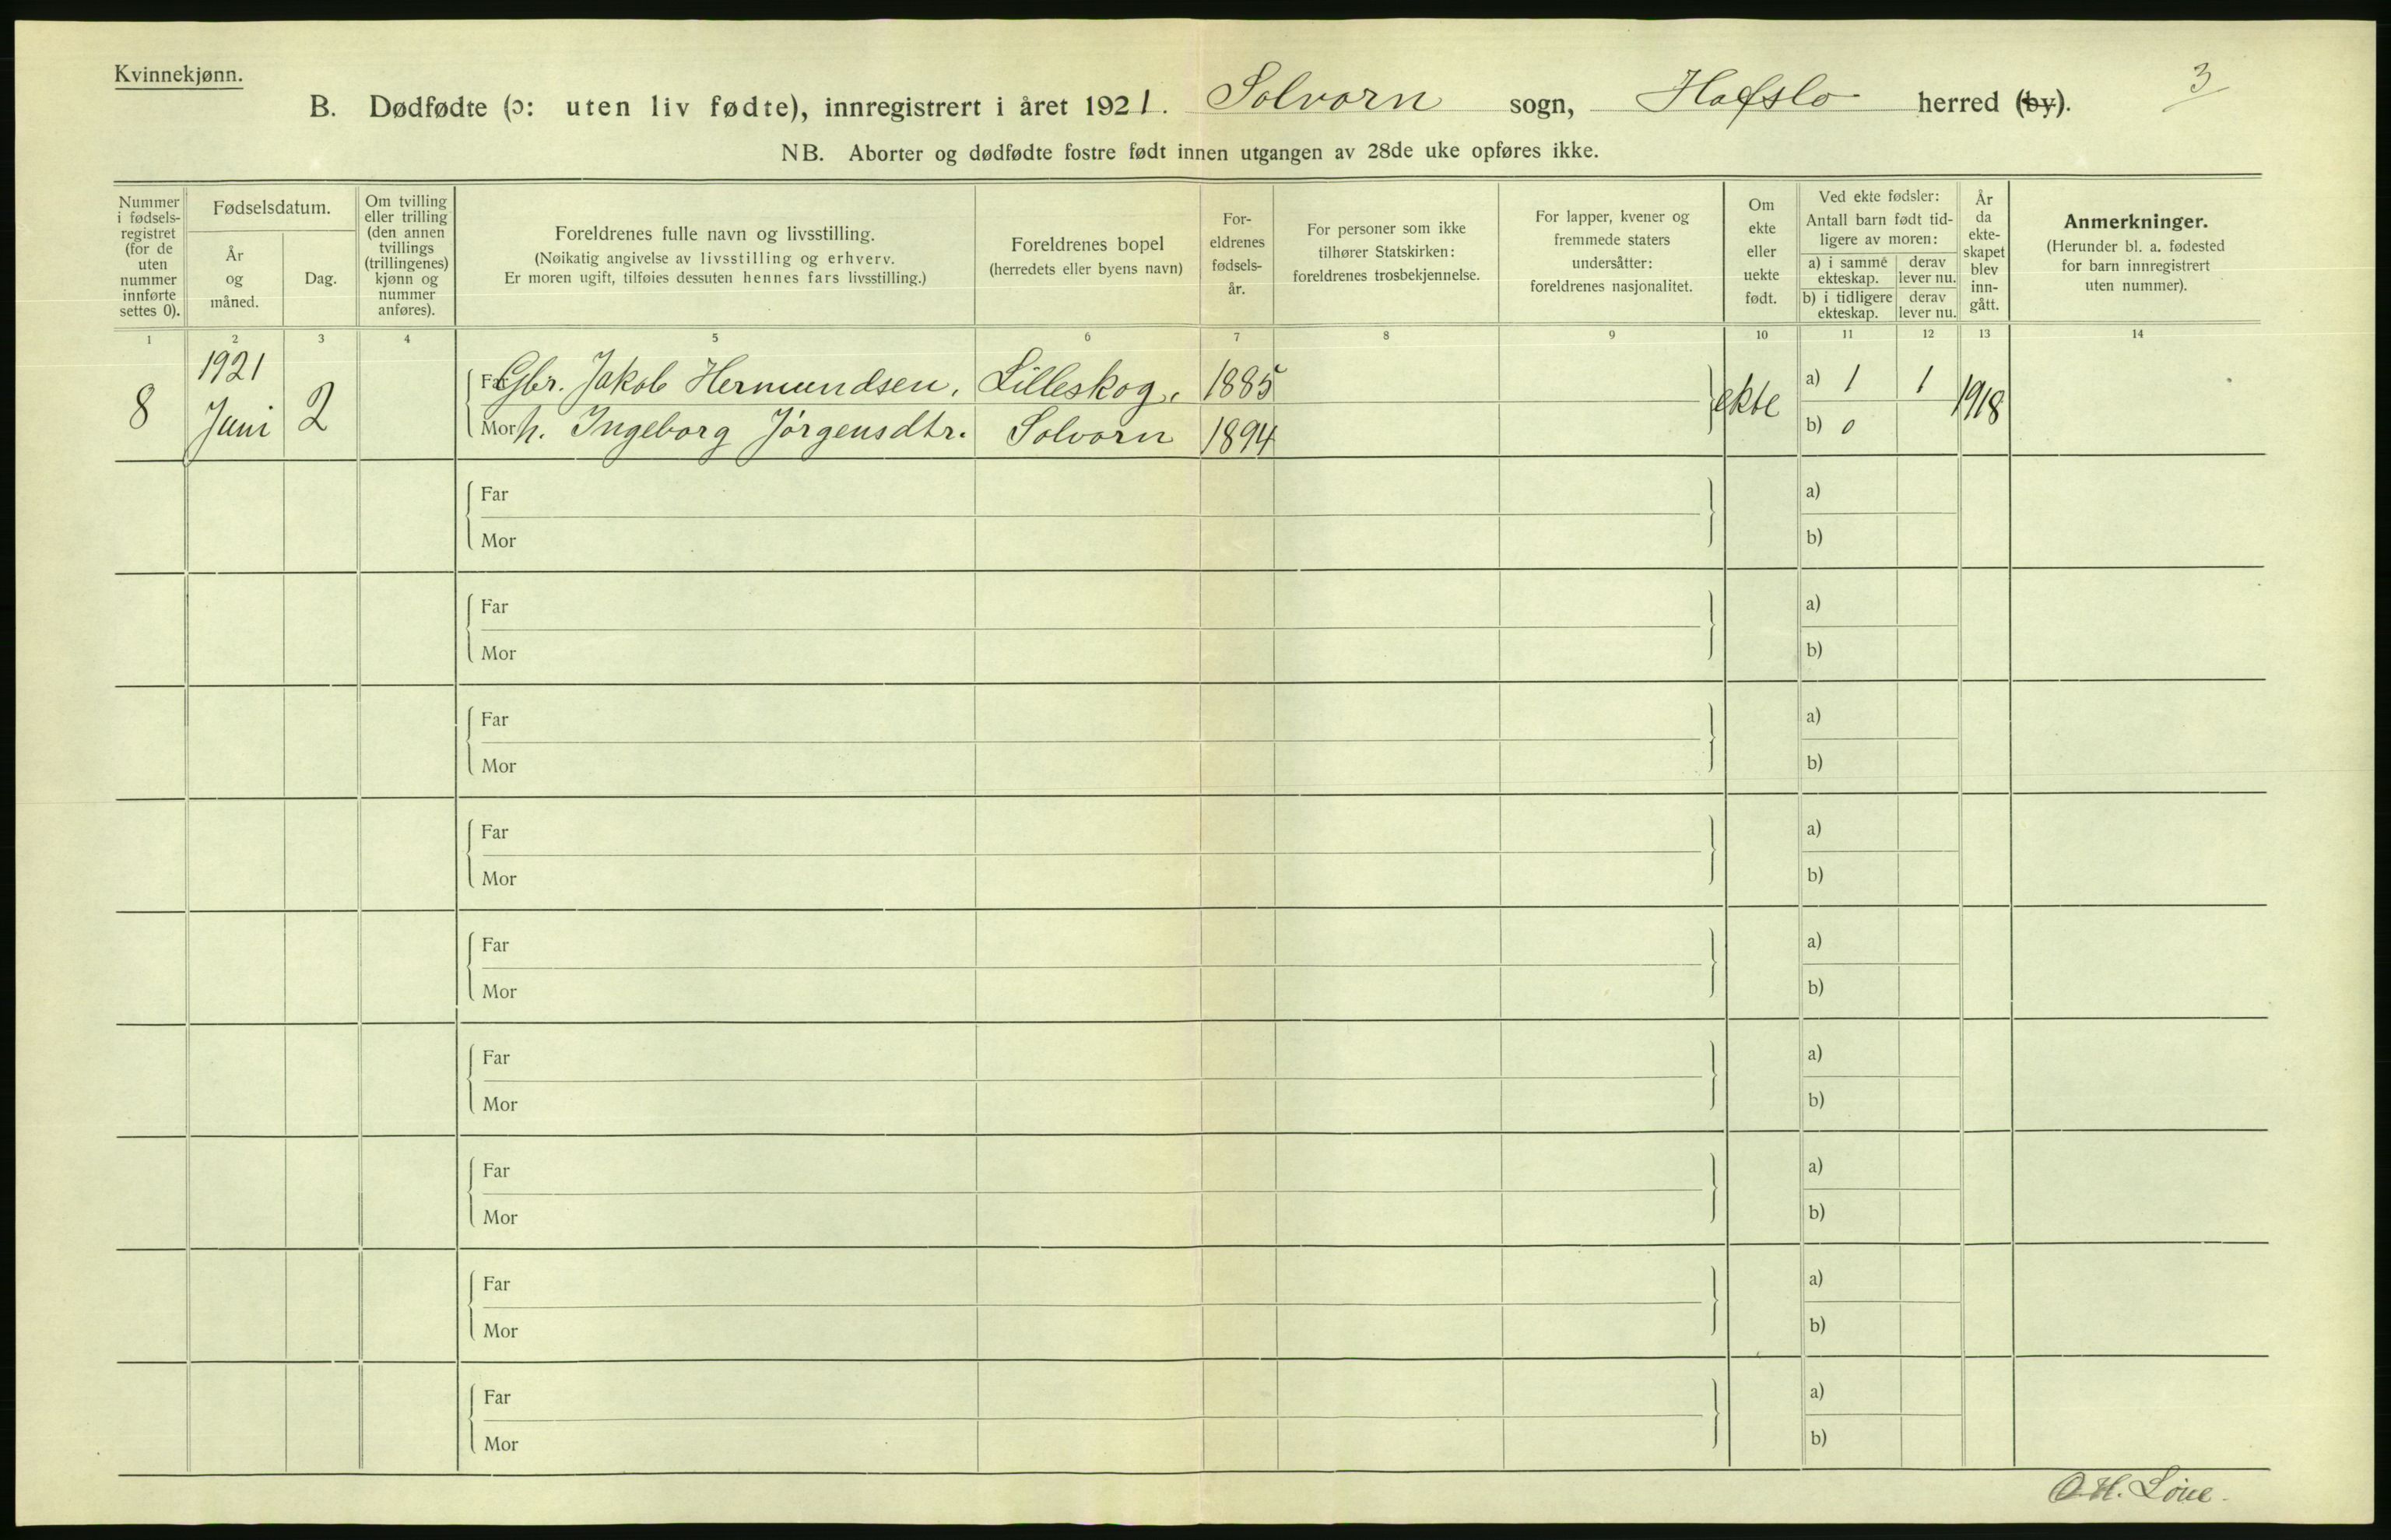 Kvinnekjønn.
3
B. Dødfødte (ɔ: uten liv fødte), innregistrert i året 1921. Solvorn sogn, Hafslo herred (by).
NB. Aborter og dødfødte fostre født innen utgangen av 28de uke opføres ikke.
Nummer i fødsels- registret (for de uten nummer innførte settes 0).
Fødselsdatum.
År og måned.
Dag.
Om tvilling eller trilling (den annen tvillings (trillingenes) kjønn og nummer anføres).
Foreldrenes fulle navn og livsstilling.
(Nøikatig angivelse av livsstilling og erhverv.
Er moren ugift, tilføies dessuten hennes fars livsstilling.)
Foreldrenes bopel
(herredets eller byens navn)
For- eldrenes fødsels- år.
For personer som ikke tilhører Statskirken: foreldrenes trosbekjennelse.
For lapper, kvener og fremmede staters undersåtter: foreldrenes nasjonalitet.
Om ekte eller uekte født.
Ved ekte fødsler:
Antall barn født tid- ligere av moren:
a) i samme ekteskap.
derav lever nu.
b) i tidligere ekteskap.
derav lever nu.
År da ekte- skapet blev inn- gått.
Anmerkninger.
(Herunder bl. a. fødested for barn innregistrert uten nummer).
1 2 3 4 5 6 7 8 9 10 11 12 13 14
8 1921 Juni 2
Far Gbr. Jakob Hermundsen, Lilleskog, 1885 ekte a) 1 1 1918
Mor h. Ingeborg Jørgensdtr. Solvorn 1894 b) 0
Far a)
Mor b)
Far a)
Mor b)
Far a)
Mor b)
Far a)
Mor b)
Far a)
Mor b)
Far a)
Mor b)
Far a)
Mor b)
Far a)
Mor b)
Far a)
Mor b)
O. H.